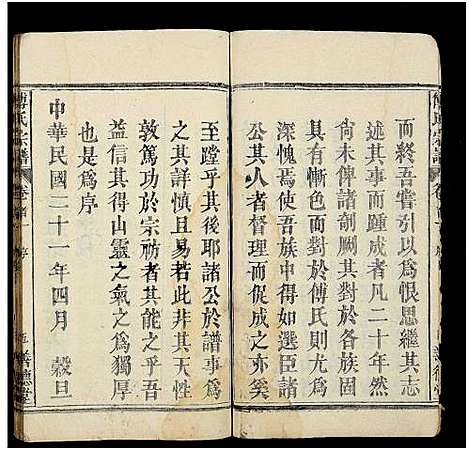 而終吾嘗引以爲恨思繼其志
述其事而踊成者凡二十年然
尙未俾諸剞劂其於各族固
有漸色而於傅氏則尤爲
深愧焉使徵大中得如選臣諸
公其人者督理而促成之亦奚
至蹉乎其後耶諸公於譜事爲
之其詳愼且易者此其天性
敦篤功於宗祊者其能之乎吾
益信其得山靈之氣之爲獨厚
也是爲序
中華民國二十一年四月 穀旦
傅氏宗譜 卷首一 序 善德堂